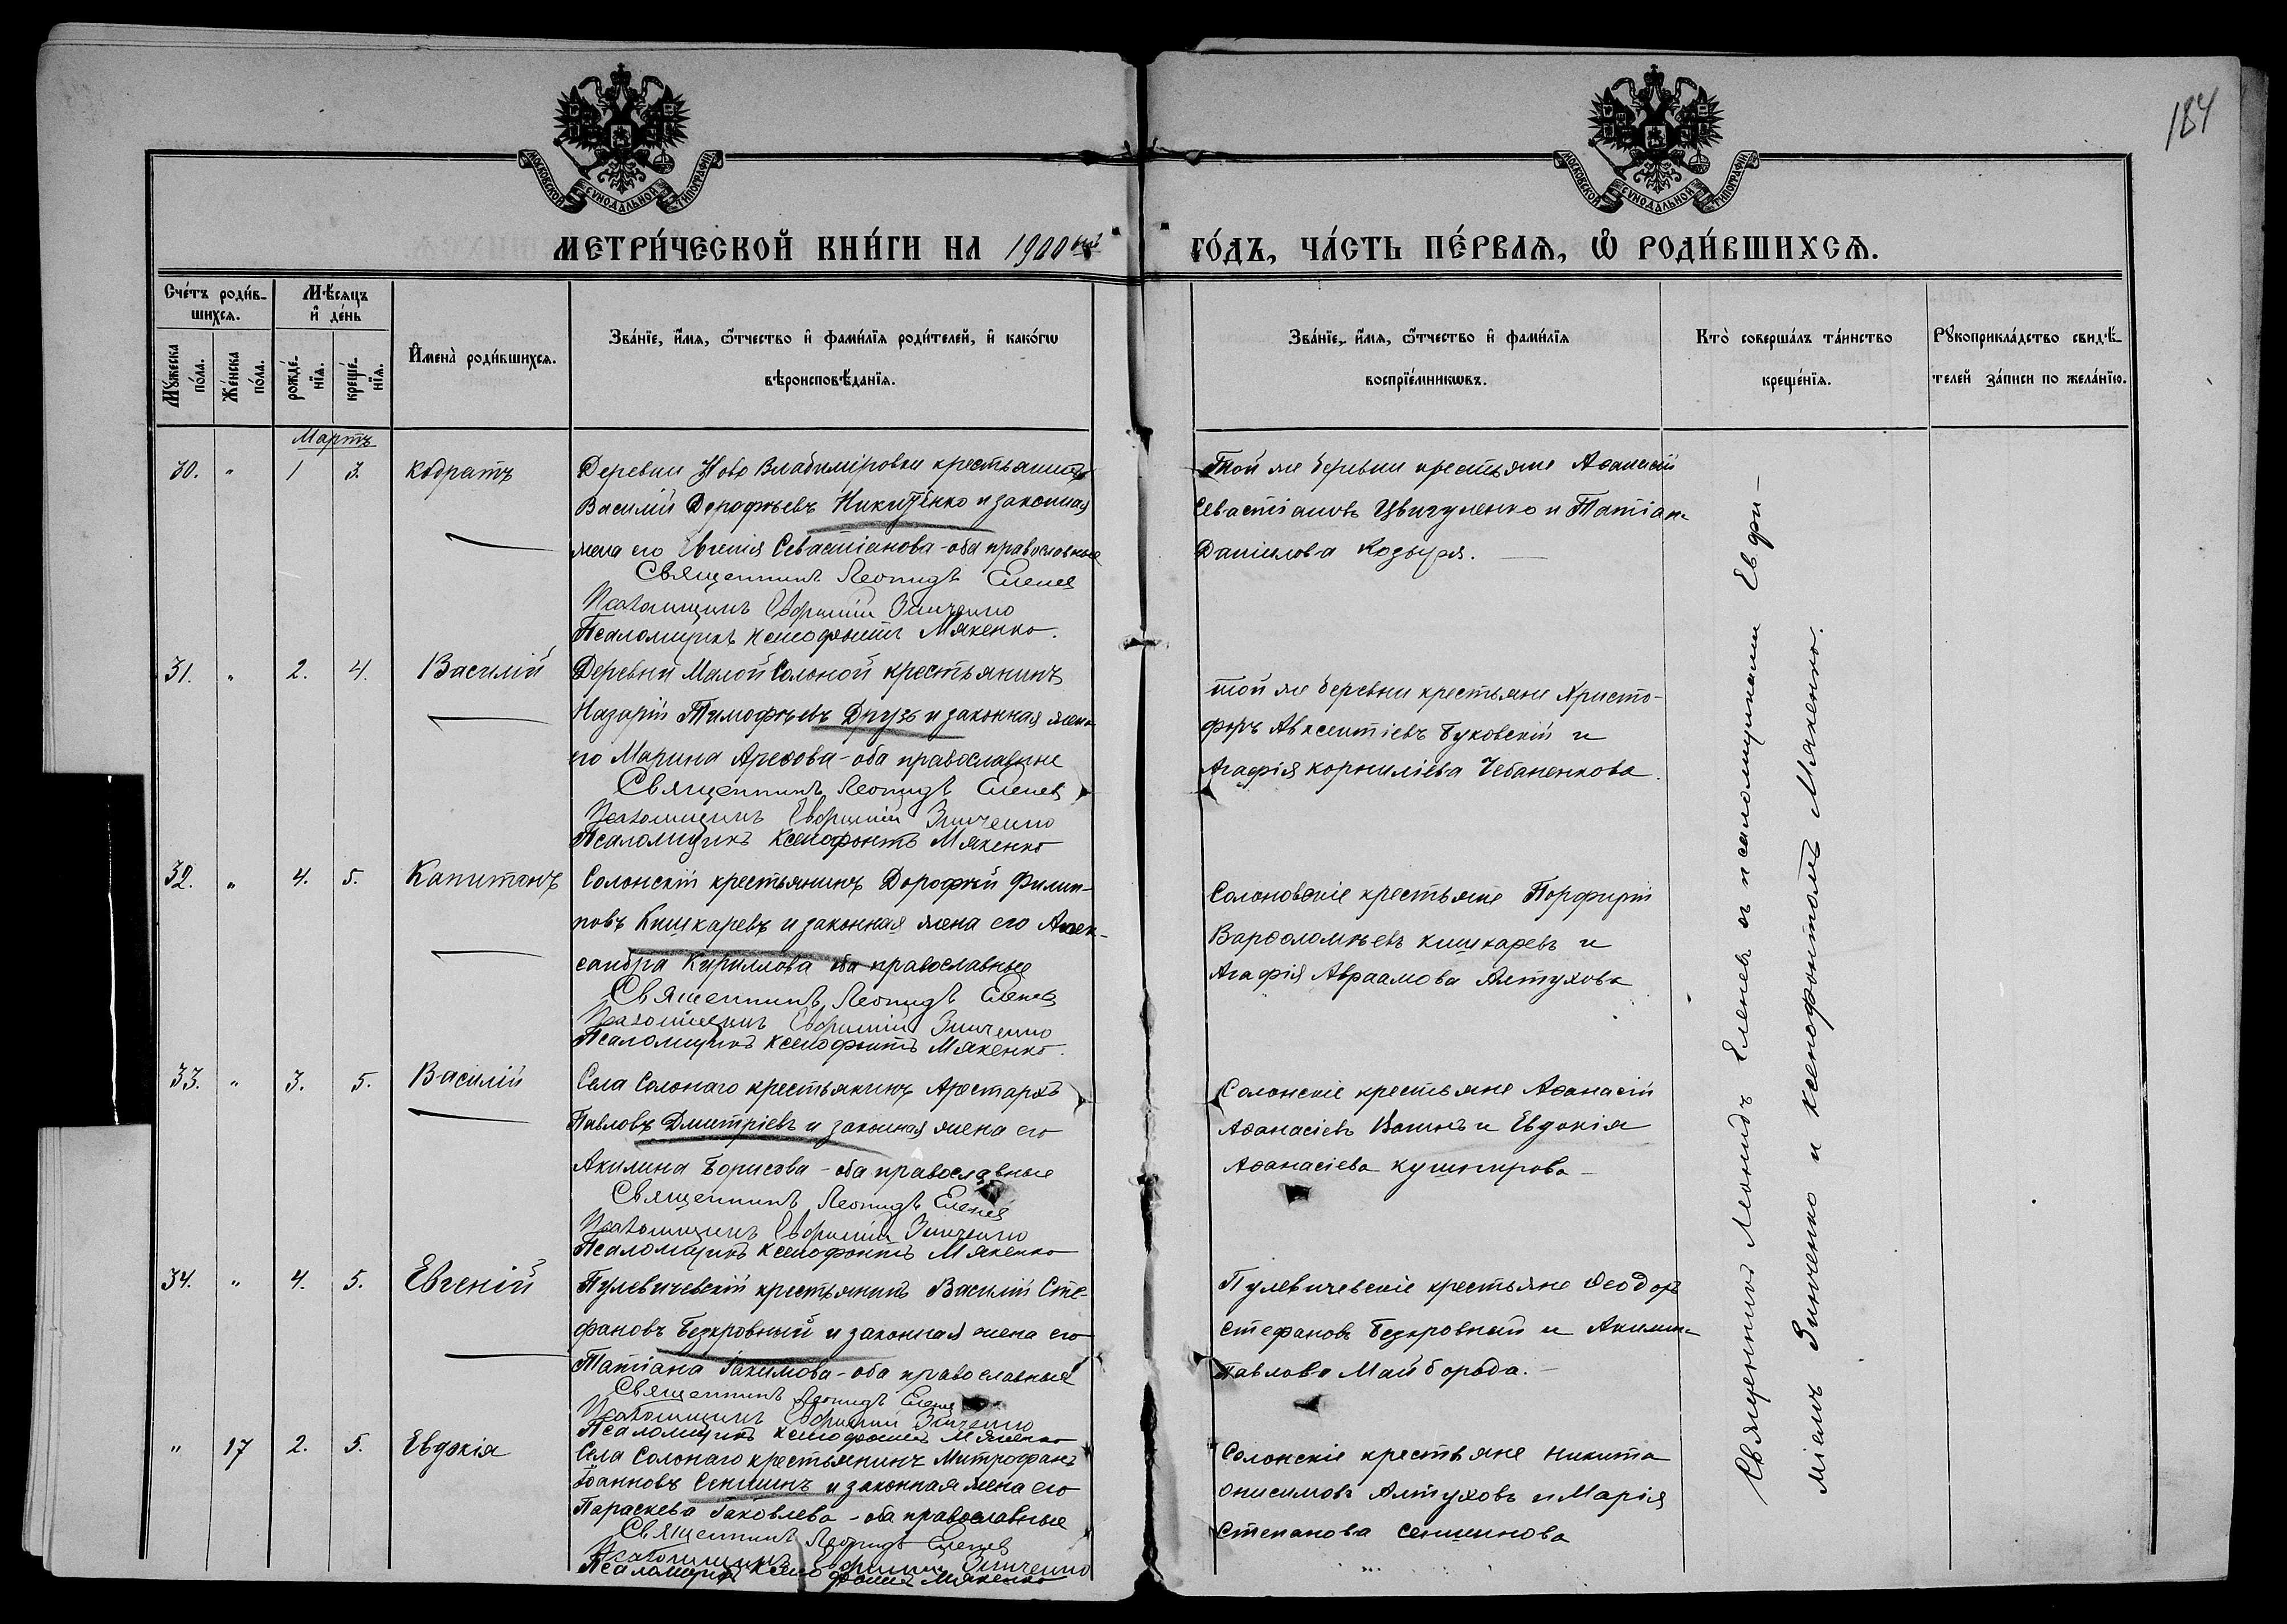 184
МОСКОВСКОЙ СѴНОДАЛЬНОЙ ТИПОГРАФІИ
МОСКОВСКОЙ СѴНОДАЛЬНОЙ ТИПОГРАФІИ
МЕТРИ́ЧЕСКОЙ КНИ́ГИ НА 1900 ГО́ДЪ, ЧА́СТЬ ПЕ́РВАѦ, Ѡ РОДИ́ВШИХСѦ.
Сче́тъ роди́в-
шихсѧ.
Мꙋжеска по́ла.
Же́нска по́ла.
Мѣ́сѧцъ
и҆ де́нь
рожде́-
нїѧ.
креще́-
нїѧ.
И҆мена̀ роди́вшихсѧ.
Зва́нїе, и҆́мѧ, ѻ҆́тчество и҆ фами́лїѧ роди́телей, и҆ како́гѡ
вѣроисповѣ́данїѧ.
Зва́нїе, и҆́мѧ, ѻ҆́тчество и҆ фами́лїѧ
воспрїе́мникѡвъ.
Кто̀ соверша́лъ та́инство
креще́нїѧ.
Рꙋкоприкла́дство свидѣ́-
телей за́писи по жела́нїю.
Мартъ
30. " 1 3. Кодратъ
Деревни Ново Владиміровки крестьянинъ
Василій Дорофѣевъ Никитенко и законная
жена его Евгенія Севастіанова - оба православные
Священникъ Леонидъ Еленев
Псаломщикъ Евфимій Зинченко
Псаломщикъ Ксенофонтъ Мякенко.
Той же деревни крестьяне Аѳанасій
Севастіановъ Цвигуненко и Татіан
Даніилова Козыря.
31. " 2. 4. Василій
Деревни Малой Солоной крестьянинъ
Назарій Тимофѣевъ Друзь и законная жена
его Марина Ареѳова - оба православные
Священникъ Леонидъ Еленев
Псаломщикъ Евфимій Зинченко
Псаломщикъ Ксенофонтъ Мякенко
той же деревни крестьяне Христо-
форъ Авксентіевъ Буковскій и
Агафія Корниліева Чебаненкова.
32. " 4. 5. Капитонъ
Солонскій крестьянинъ Дорофей Филип-
повъ Кишкаревъ и законная жена его Алек-
сандра Кириллова оба православные
Священникъ Леонидъ Еленев
Псаломщикъ Евфимій Зинченко
Псаломщикъ Ксенофонтъ Мякенко.
Солоновскіе крестьяне Порфирій
Варѳоломѣевъ Кишкаревъ и
Агафія Авраамова Алтухова
33. " 3. 5. Василій
Села Солонаго крестьянинъ Аристархъ
Павловъ Дмитріевъ и законная жена его
Акилина Борисова - оба православные
Священникъ Леонидъ Еленев
Псаломщикъ Евфимій Зинченко
Псаломщикъ Ксенофонтъ Мякенко
Солонскіе крестьяне Аѳанасій
Аѳанасіевъ и Евдокія
Аѳанасіева Кушнирова
34. " 4. 5. Евгеній
Пулевичевскій крестьянинъ Василій Сте-
фановъ Безкровный и законная жена его
Татіана Іакимова - оба православные
Священникъ Леонидъ Еленев
Псаломщикъ Евфимій Зинченко
Псаломщикъ Ксенофонтъ Мякенко
Пулевичевскіе крестьяне Ѳеодоръ
Стефановъ Безкровный и Акилин
Павлова Майборода. -
" 17 2. 5. Евдокія
Села Солонаго крестьянинъ Митрофанъ
Іоанновъ Сеншинъ и законная жена его
Параскева Іаковлева - оба православные
Священникъ Леонидъ Еленев
Псаломщикъ Евфимій Зинченко
Псаломщикъ Ксенофонтъ Мякенко
Солонскіе крестьяне Никита
Онисимовъ Алтуховъ и Марія
Степанова Сеншинова
Священникъ Леонидъ Еленевъ съ псаломщиками Евфи-
міемъ Зинченко и Ксенофонтомъ Мякенко.